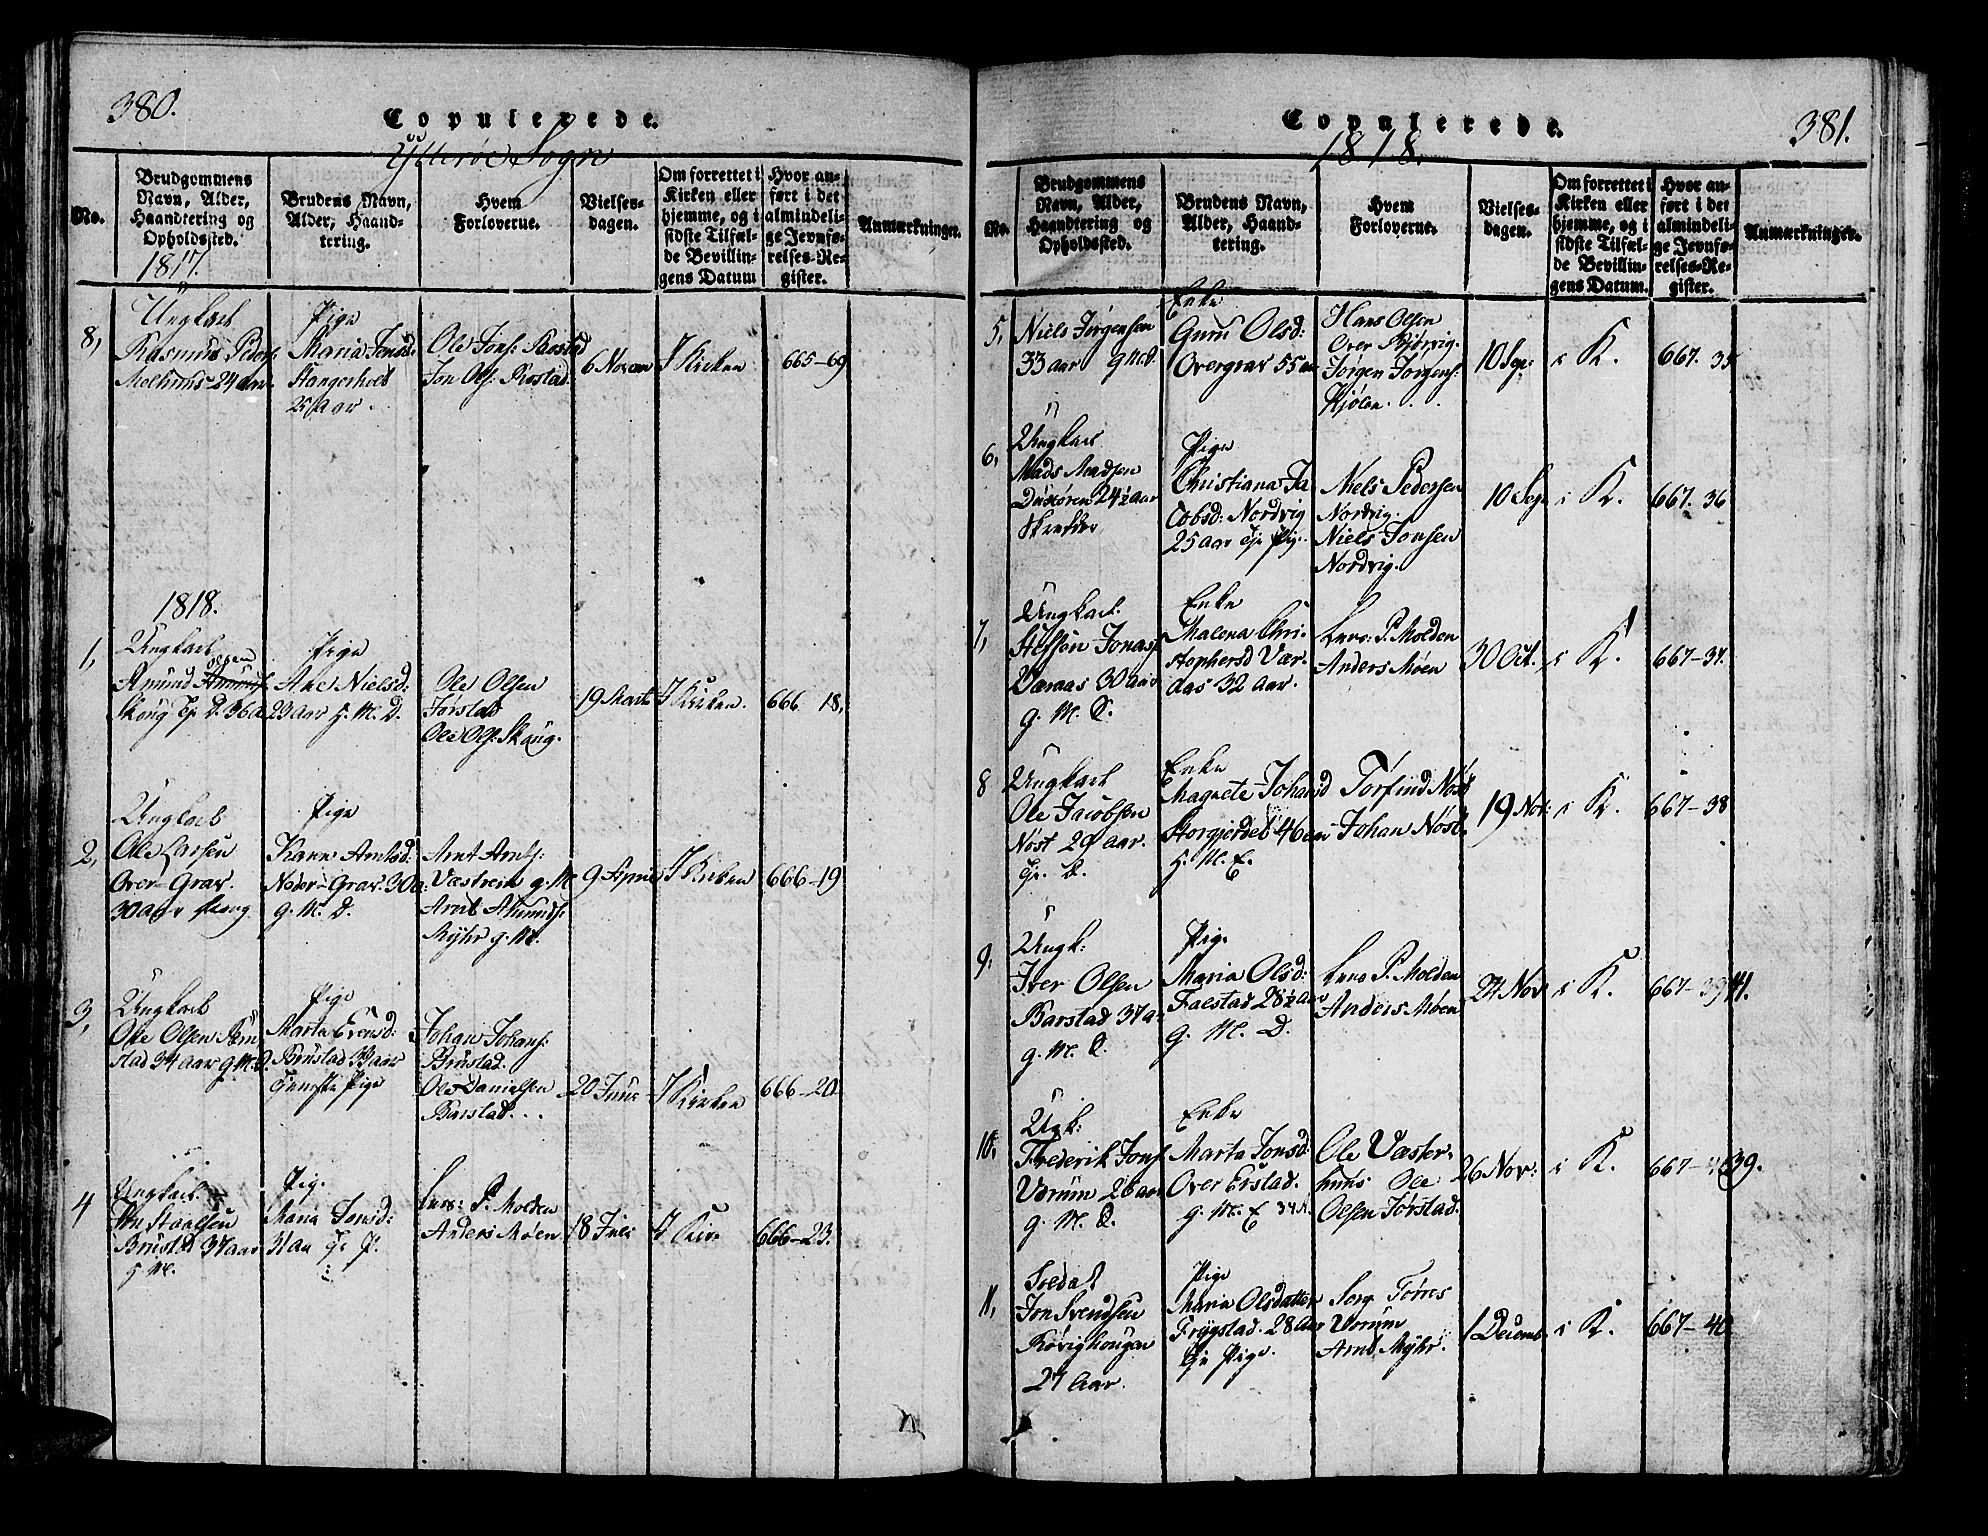 380.
Copulerede.
Ytterøe Sogn
No.
Brudgommens Navn, Alder, Haandtering og Opholdssted.
Brudens Navn, Alder, Haandtering.
Hvem Forloverne.
Vielsesdagen.
Om forrettet i Kirken eller hjemme, og i sidste Tilfælde Bevillingens Datum
Hvor anført i det almindelige Jevnførelses-Register.
Anmærkninger.
1817.
8,
Ungkarl
Rasmus Peders:
24 aar.
Pige
Maria Jensd:
Stangerholt
25 Aar.
Ole Jons:
Jon Ols:
6 Novem
I Kirken
665-69
1818.
1,
Ungkarl
Olsen
Amund Amunds.
Skoug Tje D. 36 a.
Pige
Ane Nielsd:
23 aar g. M. D.
Ole Olsen
Jørstad
Ole Ols: Skoug.
19 Marts
I Kirken.
666 18,
2,
Ungkarl
Ole Larsen
Over-Grav.
30 aar
Pige
Karen Arntsd:
Neder-Grav. 30 a:
g. M. D.
Arnt Arnts:
Væstrem g. M
Arnt Amunds:
Myhr g. M.
9 April
I Kirken
666-19
3,
Ungkarl
Ole Olsen
stad 34 aar g. M. S.
Pige
Marta Evensd:
Brustad 33 aar
Tjeneste Pige
Johan Johans:
Brustad.
Ole Danielsen
Barstad...
20 Juni
I Kirken
666-20
4
Ungkarl.
Brustad 37 aar
g. M.
Pig.
Maria Jonsd:
31 aa Tje P.
Lars: P. Molden
Anders Møen
18 Juli
I Kir.
666-23.
381.
Copulerede.
1818.
No.
Brudgommens Navn, Alder, Haandtering og Opholdssted.
Brudens Navn, Alder, Haandtering.
Hvem Forloverne.
Vielsesdagen.
Om forrettet i Kirken eller hjemme, og i sidste Tilfælde Bevillingens Datum.
Hvor anført i det almindelige Jevnførelses-Register.
Anmærkninger.
5,
Niels Jørgensen
33 aar
Enke
Guru Olsd:
Overgrav 55 aa
Hans Olsen
Over
Jørgen Jørgens:
Kjølen...
10 Sep:
i K.
667. 35
6,
Ungkarl
Mads Madsen
24½ aar
Skredder
Pige
Christiana Ja
cobsd: Nordvig
25 aar Tje Pig.
Niels Pedersen
Nordvig.
Niels Jonsen
Nordvig.
10 Sep
i K.
667. 36
7,
Ungkarl.
Steffen Jonas:
30 aar
g. M. S.
Enke
Malena Chri-
stophersd Vær-
das 32 aar.
Lars: P. Molden
Anders Møen
30 Oct.
i K.
667-37.
8
Ungkarl
Ole Jacobsen
Nøst 29 aar.
Tje. D.
Enke
Magrete Johansd
Storgjerdet 46 aa
g. M. E.
Torfind Nøst
Johan Nøst.
19 Nov:
i K.
667-38
9,
Ungk:
Iver Olsen
Barstad 37 a:
g. M. S.
Pige
Maria Olsd:
Falstad 28½ aar
g. M. D.
Lars P. Molden
Anders Møen
24 Nov
i K.
667-39 41.
10.
Ugk:
Frederik Jons
Udrum 26 aar
g. M. S.
Enke
Marta Jonsd:
Over Erstad.
g. M. E 34 A.
Ole Væster-
huus Ole
Olsen Jørstad.
26 Nov:
i K.
667- 39.
11,
Soldat
Jon Svendsen
Røvighougen
27 Aar.
Pige
Maria Olsdatter
Frygstad. 28 Aar
Tje Pige.
Serg Tørres
Udrum
Arnt Myhr.
1 Decemb.
i K.
667-40